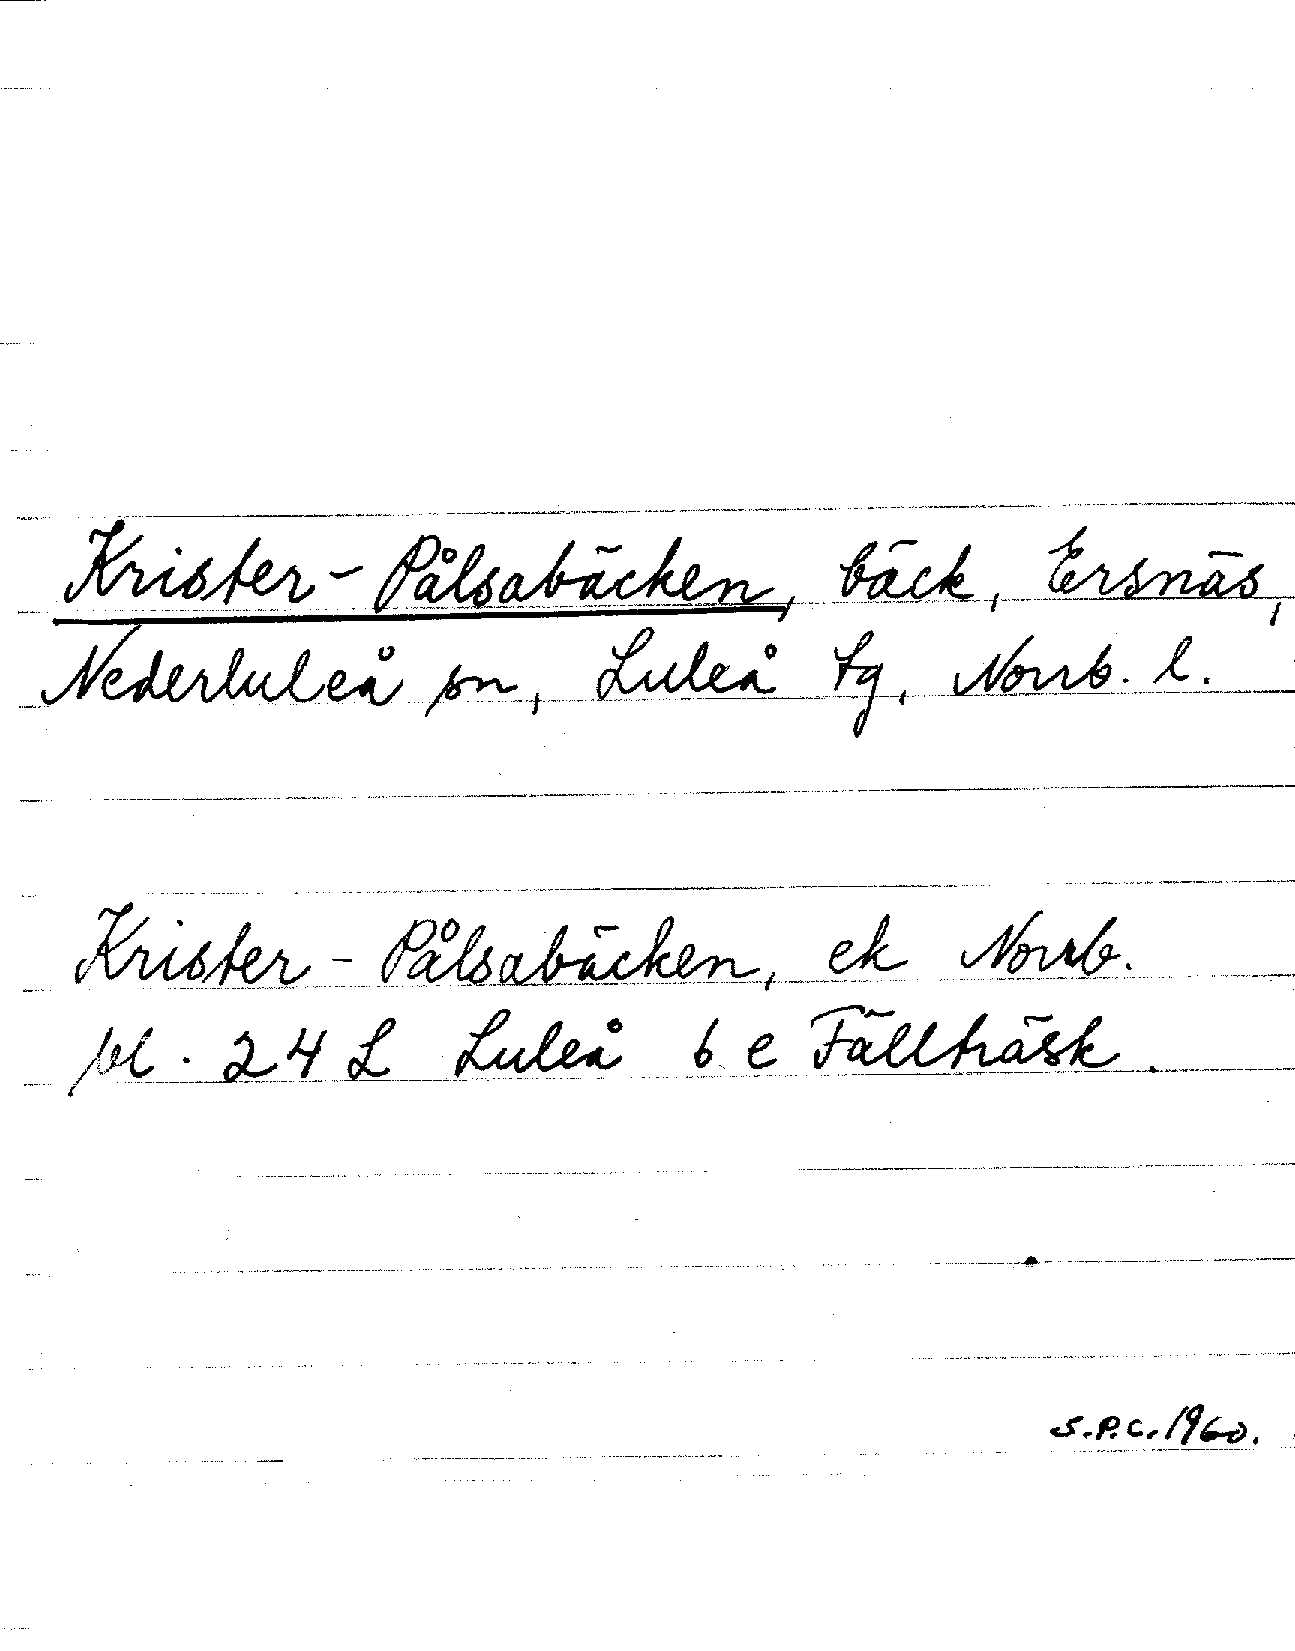 Krister-Pålsabäcken, bäck, Ersnäs,
Nederluleå sn, Luleå tg, Norrb. l.
Krister-Pålsabäcken, ek Norrb.
bl. 24 L Luleå 6 e Fällträsk.
S.P.C. 1960.